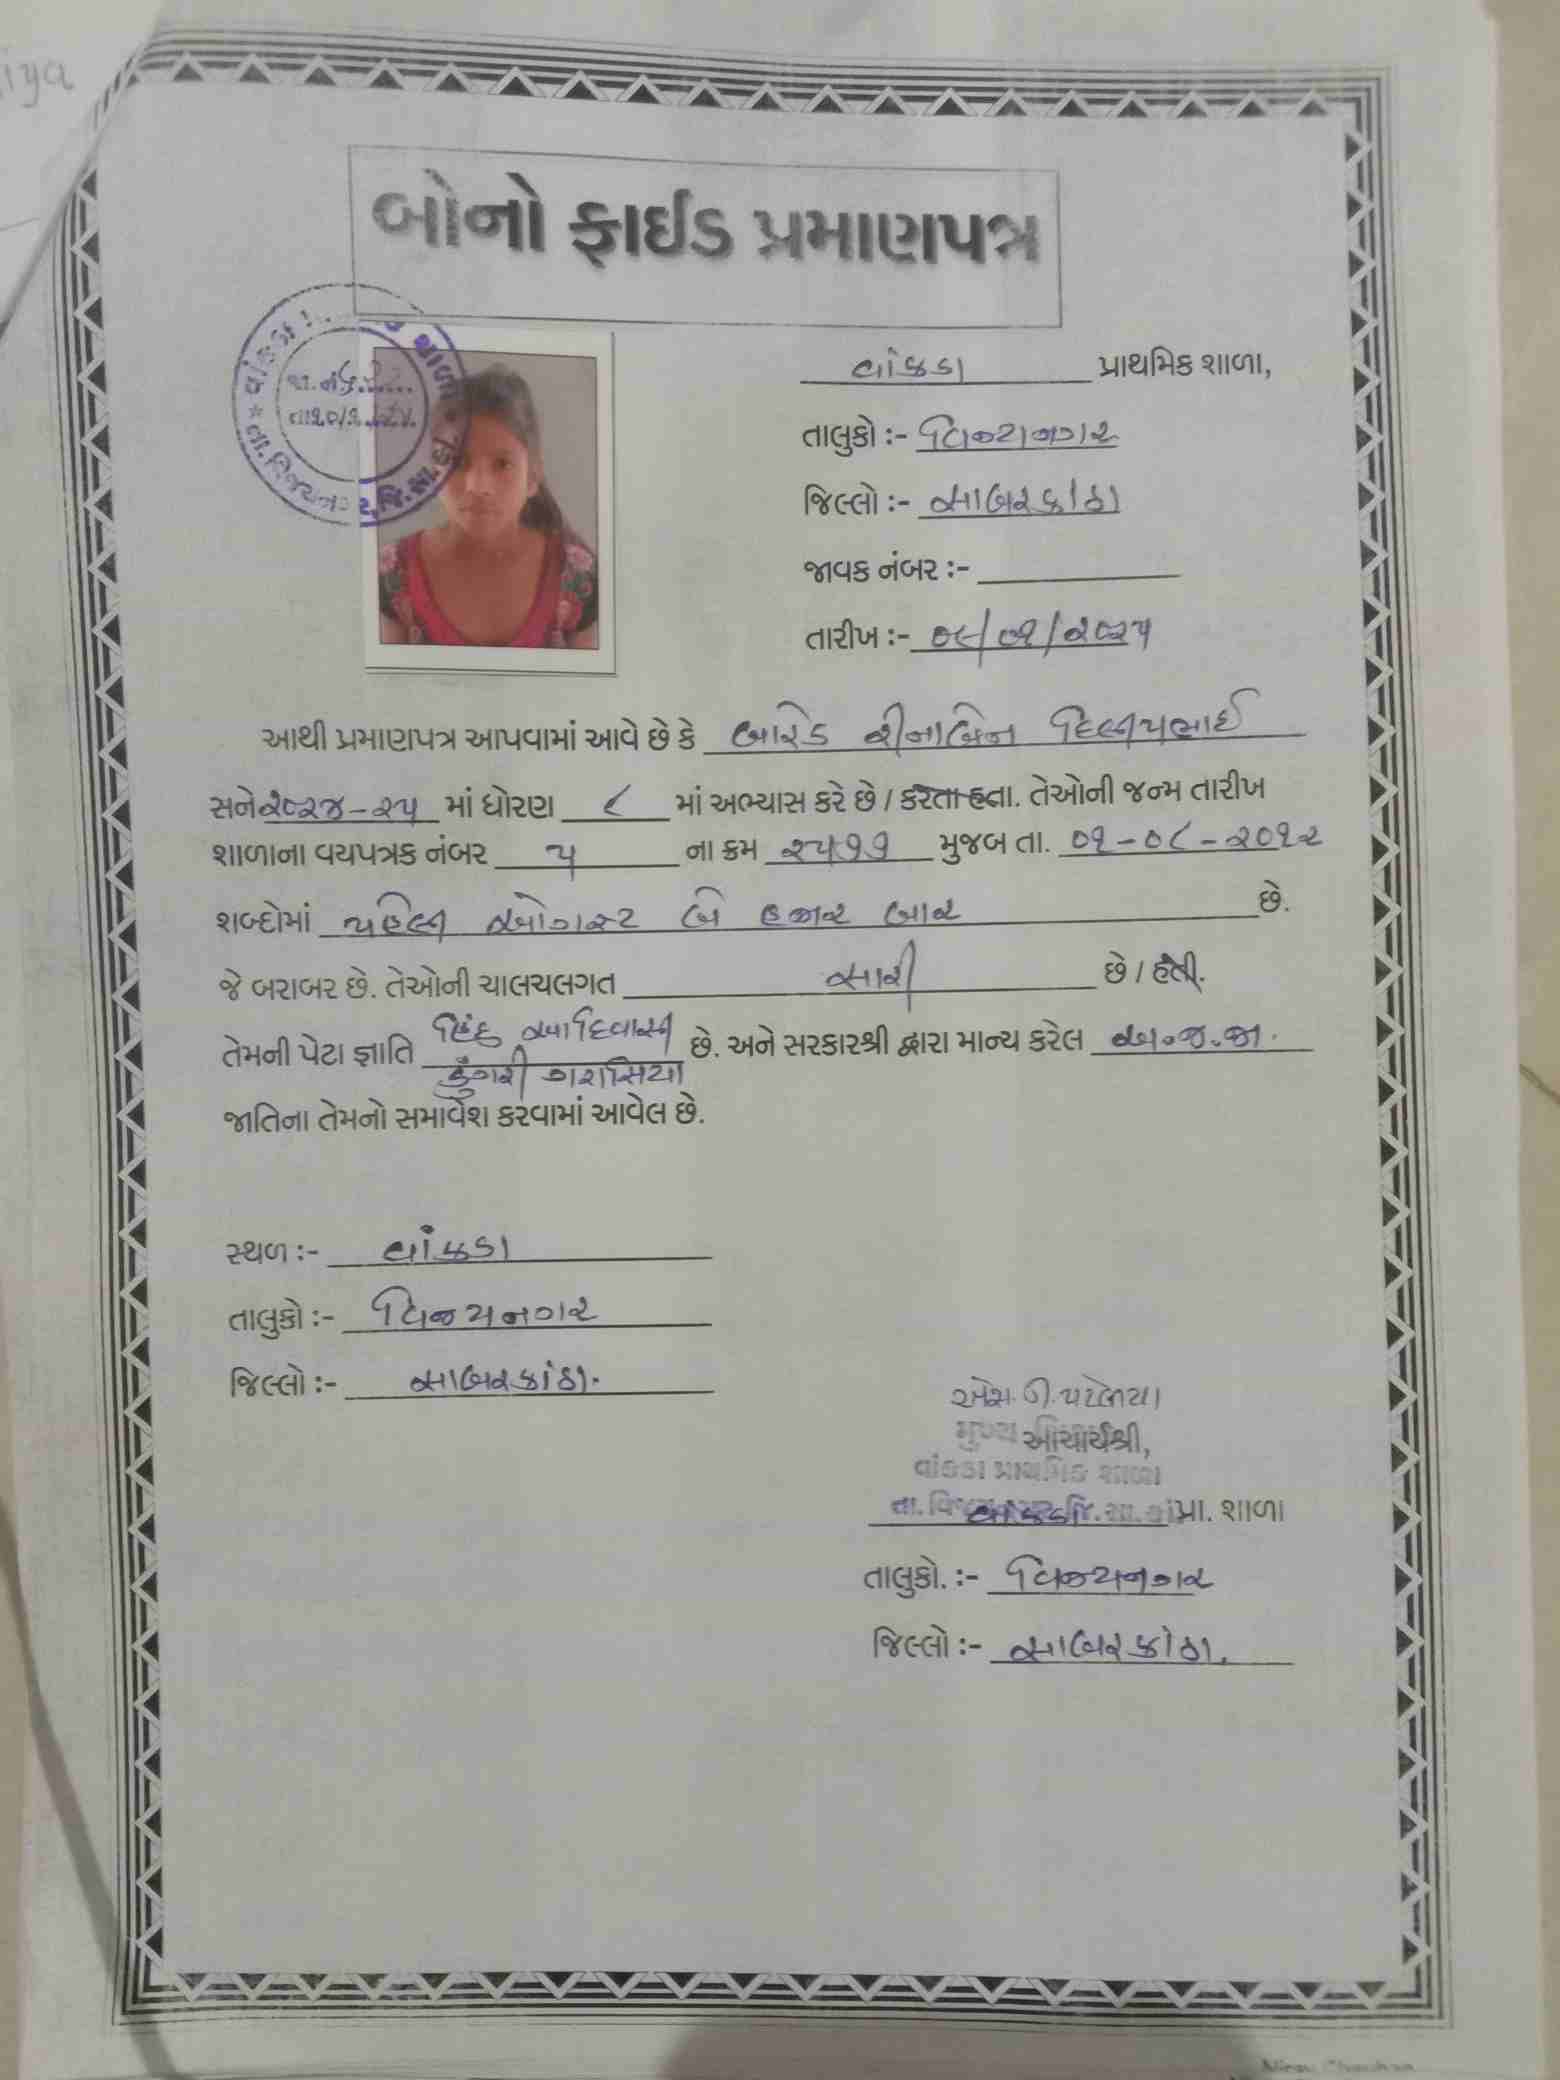 iya
બોનો ફાઈડ પ્રમાણપત્ર
વાંકડા પ્રાથમિક શાળા,
તાલુકો :- વિજયનગર
જિલ્લો :- સાબરકાંઠા
જાવક નંબર :-
તારીખ :- ૦૯/૦૧/૨૦૨૫
આથી પ્રમાણપત્ર આપવામાં આવે છે કે બારોડ રીનાબેન દિલીપભાઈ
સને ૨૦૨૪-૨૫ માં ધોરણ ૮ માં અભ્યાસ કરે છે / કરતા હતા. તેઓની જન્મ તારીખ
શાળાના વયપત્રક નંબર ૫ ના ક્રમ ૨૫૧૧ મુજબ તા. ૦૧-૦૮-૨૦૧૨
શબ્દોમાં પહેલી ઓગસ્ટ બે હજાર બાર છે.
જે બરાબર છે. તેઓની ચાલચલગત સારી છે / હતી.
તેમની પેટા જ્ઞાતિ હિંદુ આદિવાસી ડુંગરી ગરાસિયા છે. અને સરકારશ્રી દ્વારા માન્ય કરેલ અ.જ.જા.
જાતિના તેમનો સમાવેશ કરવામાં આવેલ છે.
સ્થળ :- વાંકડા
તાલુકો :- વિજયનગર
જિલ્લો :- સાબરકાંઠા.
એસ.ડી.પટેલીયા
મુખ્ય આચાર્યશ્રી,
વાંકડા પ્રાથમિક શાળા
તા. વિજયનગર જિ. સા. કાં પ્રા. શાળા
તાલુકો. :- વિજયનગર
જિલ્લો :- સાબરકાંઠા.